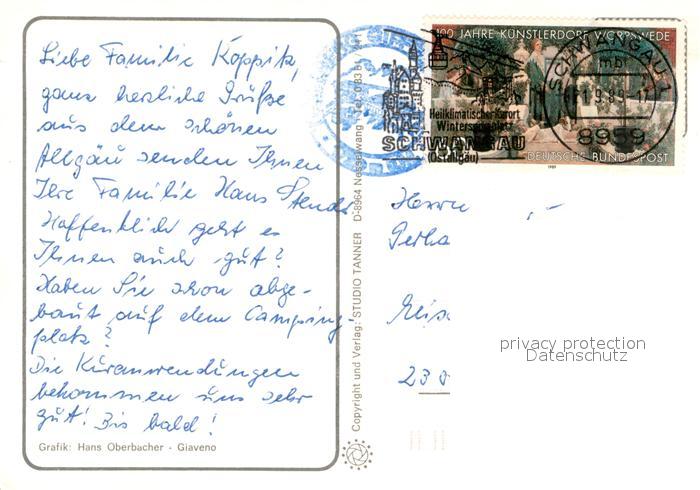 Liebe Familie Koppitz,
ganz herzliche Grüße
aus dem schönen
Allgäu senden Ihnen
Ihre Familie Hans
Hoffentlich geht es
Ihnen auch gut?
Haben Sie schon abge-
baut auf dem Camping-
platz?
Die Kuranwendungen
bekommen uns sehr
gut! Bis bald!
Grafik: Hans Oberbacher - Giaveno
Copyright und Verlag: STUDIO TANNER D-8964 Nesselwang
100 JAHRE KÜNSTLERDORF WORPSWEDE
DEUTSCHE BUNDESPOST
Heilklimatischer Kurort
Wintersportplatz
SCHWANGAU
(Ostallgäu)
SCHWANGAU 1
mb
8959
Herrn
Gerha
23
privacy protection
Datenschutz